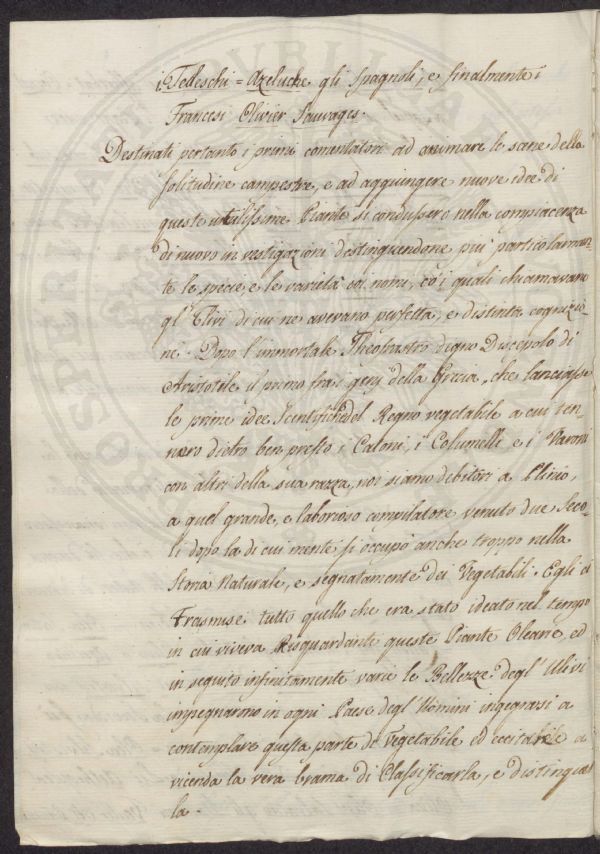 i Tedeschi = Azeluche gli Spagnoli, e finalmente i
Francesi Olivier Sauvages.
Destinati pertanto i primi comentatori ad animare le scene della
solitudine campestre, e ad aggiungere nuove idee di
queste utilissime Piante si condussero nella compiacenza
di nuove investigazioni distinguendone più particolarmen-
te le specie, e le varietà coi nomi, co' i quali chiamavano
gl' Ulivi di cui ne avevano perfetta, e distinta cognizio-
ne. Dopo l'immortale Theofrastro degno Discepolo di
Aristotile il primo fra i genj della Grecia, che lanciasse
le prime idee scentifiche del Regno vegetabile a cui ten-
nero dietro ben presto i Catoni, i Columelle e i Varoni
con altri della sua razza, noi siamo debitori a Plinio,
a quel grande, e laborioso compilatore venuto due Seco-
li dopo la di cui mente si occupò anche troppo nella
Storia Naturale, e segnatamente dei Vegetabili. Egli ci
Trasmise tutto quello che era stato ideato nel tempo
in cui viveva Risguardante queste Piante Oleare, ed
in seguito infinitamente varie le Bellezze degl' Ulivi
impegnarono in ogni Paese degl' Uomini ingegrasi a
contemplare questa parte di Vegetabile ed eccitarle a
vicenda la vera brama di Classificarla, e distinguer
la.